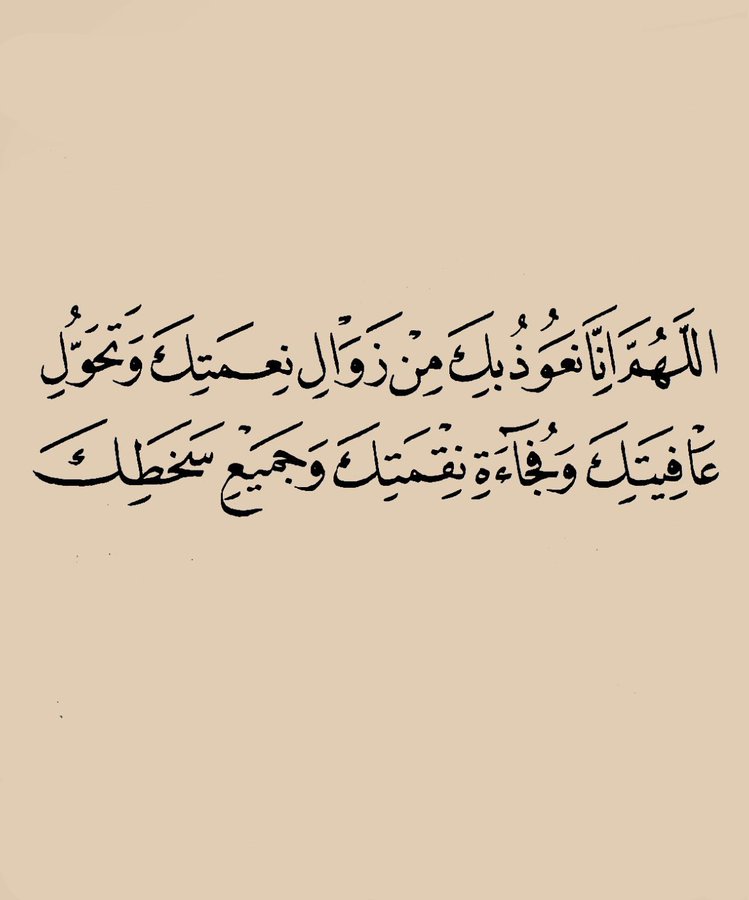 اللَّهُمَّ اِنَّا نَعُوْذُ بِكَ مِنْ زَوَالِ نِعْمَتِكَ وَتَحَوُّلِ
عَافِيَتِكَ وَفُجَآءَةِ نِقْمَتِكَ وَجَمِيْعِ سَخَطِكَ